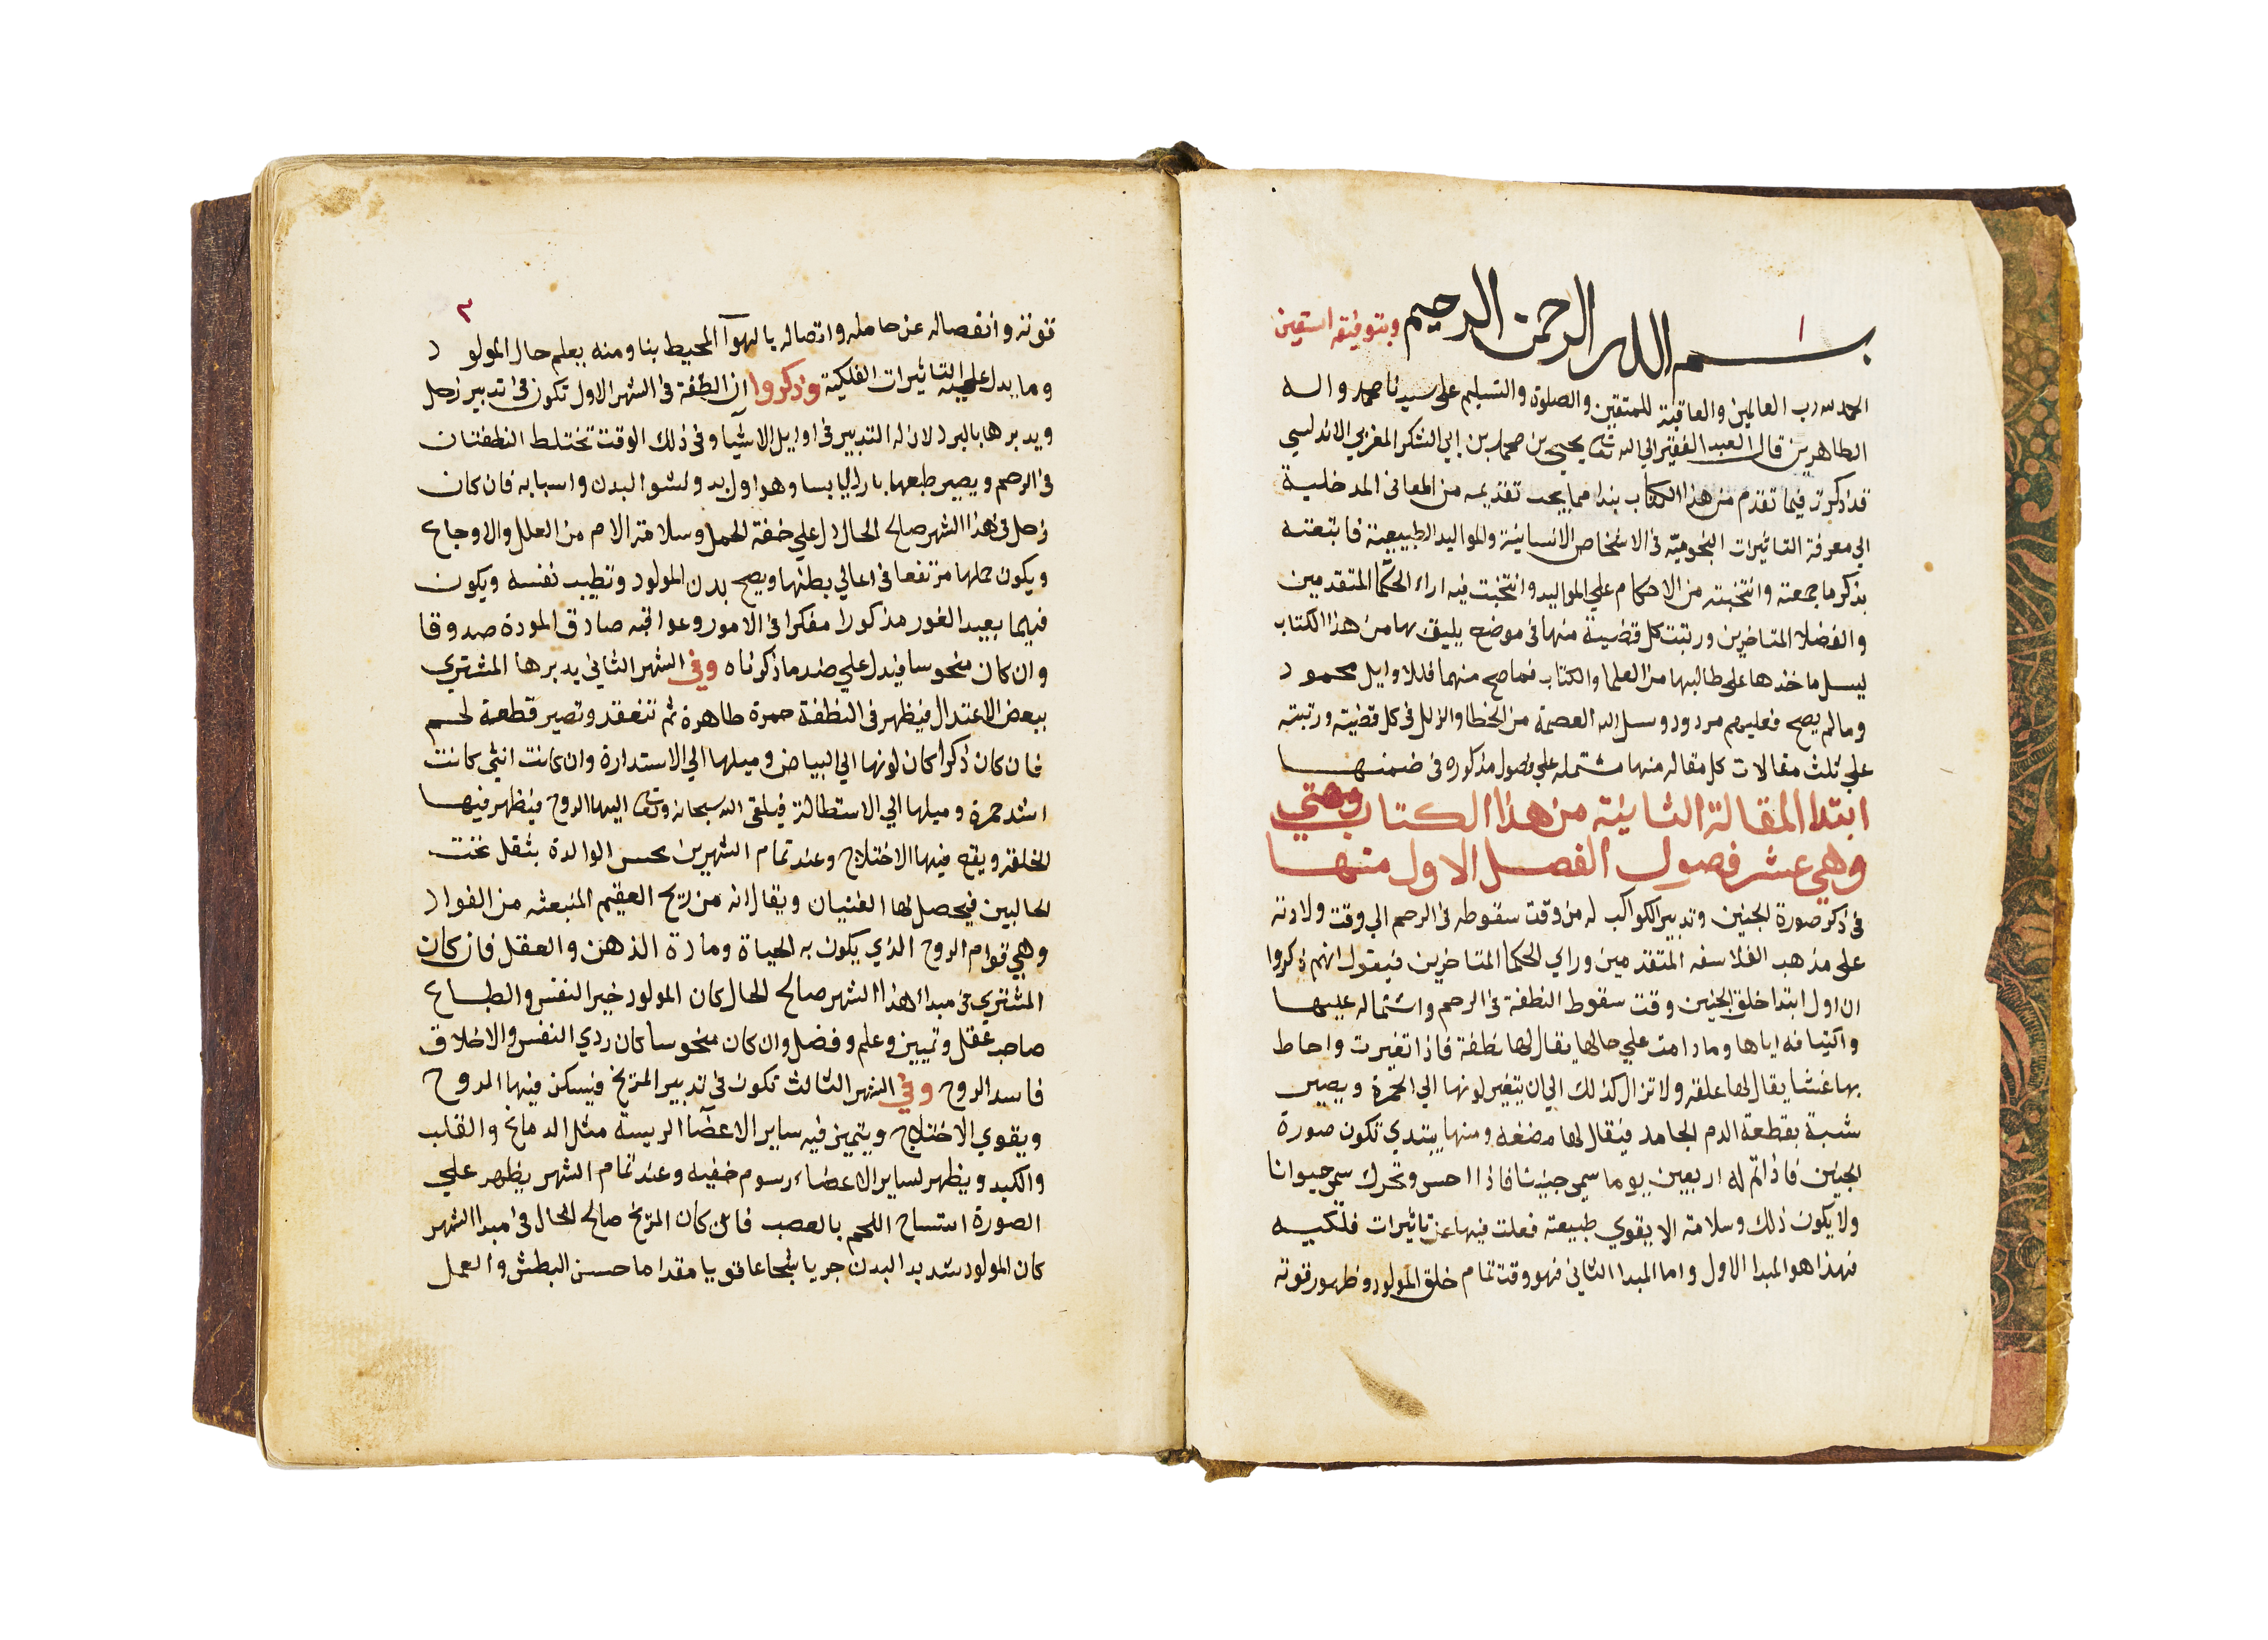 ١
بسم الله الرحمن الرحيم وبتوفيقه استعين
الحمد لله رب العالمين والعاقبة للمتقين والصلوة والتسليم على سيدنا محمد واله
الطاهرين قال العبد الفقير الي الله تعا يحيى بن محمد بن ابي الشكر المغربي الاندلسي
قد ذكرت فيما تقدم من هذا الكتاب نبذا مما يجب تقديمه من المعاني المدخلية
الي معرفة التاثيرات النجومية في الاشخاص الانسانية والمواليد الطبيعية فاتبعته
بذكر ما جمعته وانتخبته من الاحكام علي المواليد وانتخبت فيه اراء الحكما المتقدمين
والفضلا المتاخرين ورتبت كل قضية منها في موضع يليق بها من هذا الكتاب
ليسهل ماخذها على طالبها من العلما والكتاب فما صح منها فللاوايل محمود
وما لم يصح فعليهم مردود وسل الله العصمة من الخطا والزلل في كل قضية ورتبته
علي ثلث مقالات كل مقاله منها مشتمله علي فصول مذكوره في ضمنها
ابتدا المقالة الثانية من هذا الكتاب وهي
وهي عشر فصول الفصل الاول منها
في ذكر صورة الجنين وتدبير الكواكب له من وقت سقوطه في الرحم الي وقت ولادته
على مذهب الفلاسفه المتقدمين وراي الحكما المتاخرين فيقول انهم ذكروا
ان اول ابتدا خلق الجنين وقت سقوط النطفة في الرحم واشتماله عليها
وما دامت علي حالها يقال لها نطفة فاذا تغيرت واحاط
بها غشا يقال لها علقه ولا تزال كذلك الي ان يتغير لونها الي الحمرة ويصير
شبة بقطعة الدم الجامد فيقال لها مضغه ومنها يبتدي تكون صورة
الجنين فاذا تم له اربعين يوما سمي جنينا فاذا احس وتحرك سمي حيوانا
ولا يكون ذلك وسلامته الا بقوي طبيعة فعلت فيها عن تاثيرات فلكيه
فهذا هو المبدا الاول واما المبدا الثاني فهو وقت تمام خلق المولود وظهور قوته
٢
قوته وانفصاله عن حامله واتصاله بالهوآ المحيط بنا ومنه يعلم حال المولود
وما يدل عليه التاثيرات الفلكية وذكروا ان النطفة في الشهر الاول تكون في تدبير زحل
ويدبرها بالبرد لان له التدبير في اوايل الاشيآ وفي ذلك الوقت تختلط النطفتان
في الرحم ويصير طبعها باردا يابسا وهو اول بدو نشو البدن واسبابه فان كان
زحل في هذا الشهر صالح الحال دل علي خفة الحمل وسلامة الام من العلل والاوجاع
ويكون حملها مرتفعا في اعالي بطنها ويصح بدن المولود وتطيب نفسه ويكون
فيلما بعيد الغور مذكورا مفكرا في الامور وعواقبه صادق المودة صدوقا
وان كان منحوسا فيدل علي ضد ما ذكرناه وفي الشهر الثاني يدبرها المشتري
ببعض الاعتدال فيظهر في النطفة حمرة طاهرة ثم تنعقد وتصير قطعة لحم
فان كان ذكرا كان لونها الي البياض وميلها الي الاستدارة وان كانت انثي كانت
اشد حمرة وميلها الي الاستطالة فيلقى الله سبحانه وتعا اليها الروح فيظهر فيها
الخلقة ويقع فيها الاختلاج وعند تمام الشهرين يحس الوالدة بثقل تحت
الحالبين فيحصل لها الغثيان ويقال انه من ريح العقيم المنبعثه من الفواد
وهي قوام الروح الذي يكون به الحياة ومادة الذهن والعقل فان كان
المشتري في مبداء هذا الشهر صالح الحال كان المولود خير النفس والطباع
صاحب عقل وتمييز وعلم وفضل وان كان منحوسا كان ردي النفس والاخلاق
فاسد الروح وفي الشهر الثالث تكون في تدبير المريخ فيسكن فيها الروح
ويقوي الاختلاج ويتميز فيه ساير الاعضآ الريسة مثل الدماغ والقلب
والكبد ويظهر لساير الاعضاء رسوم خفيه وعند تمام الشهر يظهر علي
الصورة انتساج اللحم بالعصب فان كان المريخ صالح الحال في مبدا الشهر
كان المولود شديد البدن جريا شجاعا قويا مقداما حسن البطش والعمل